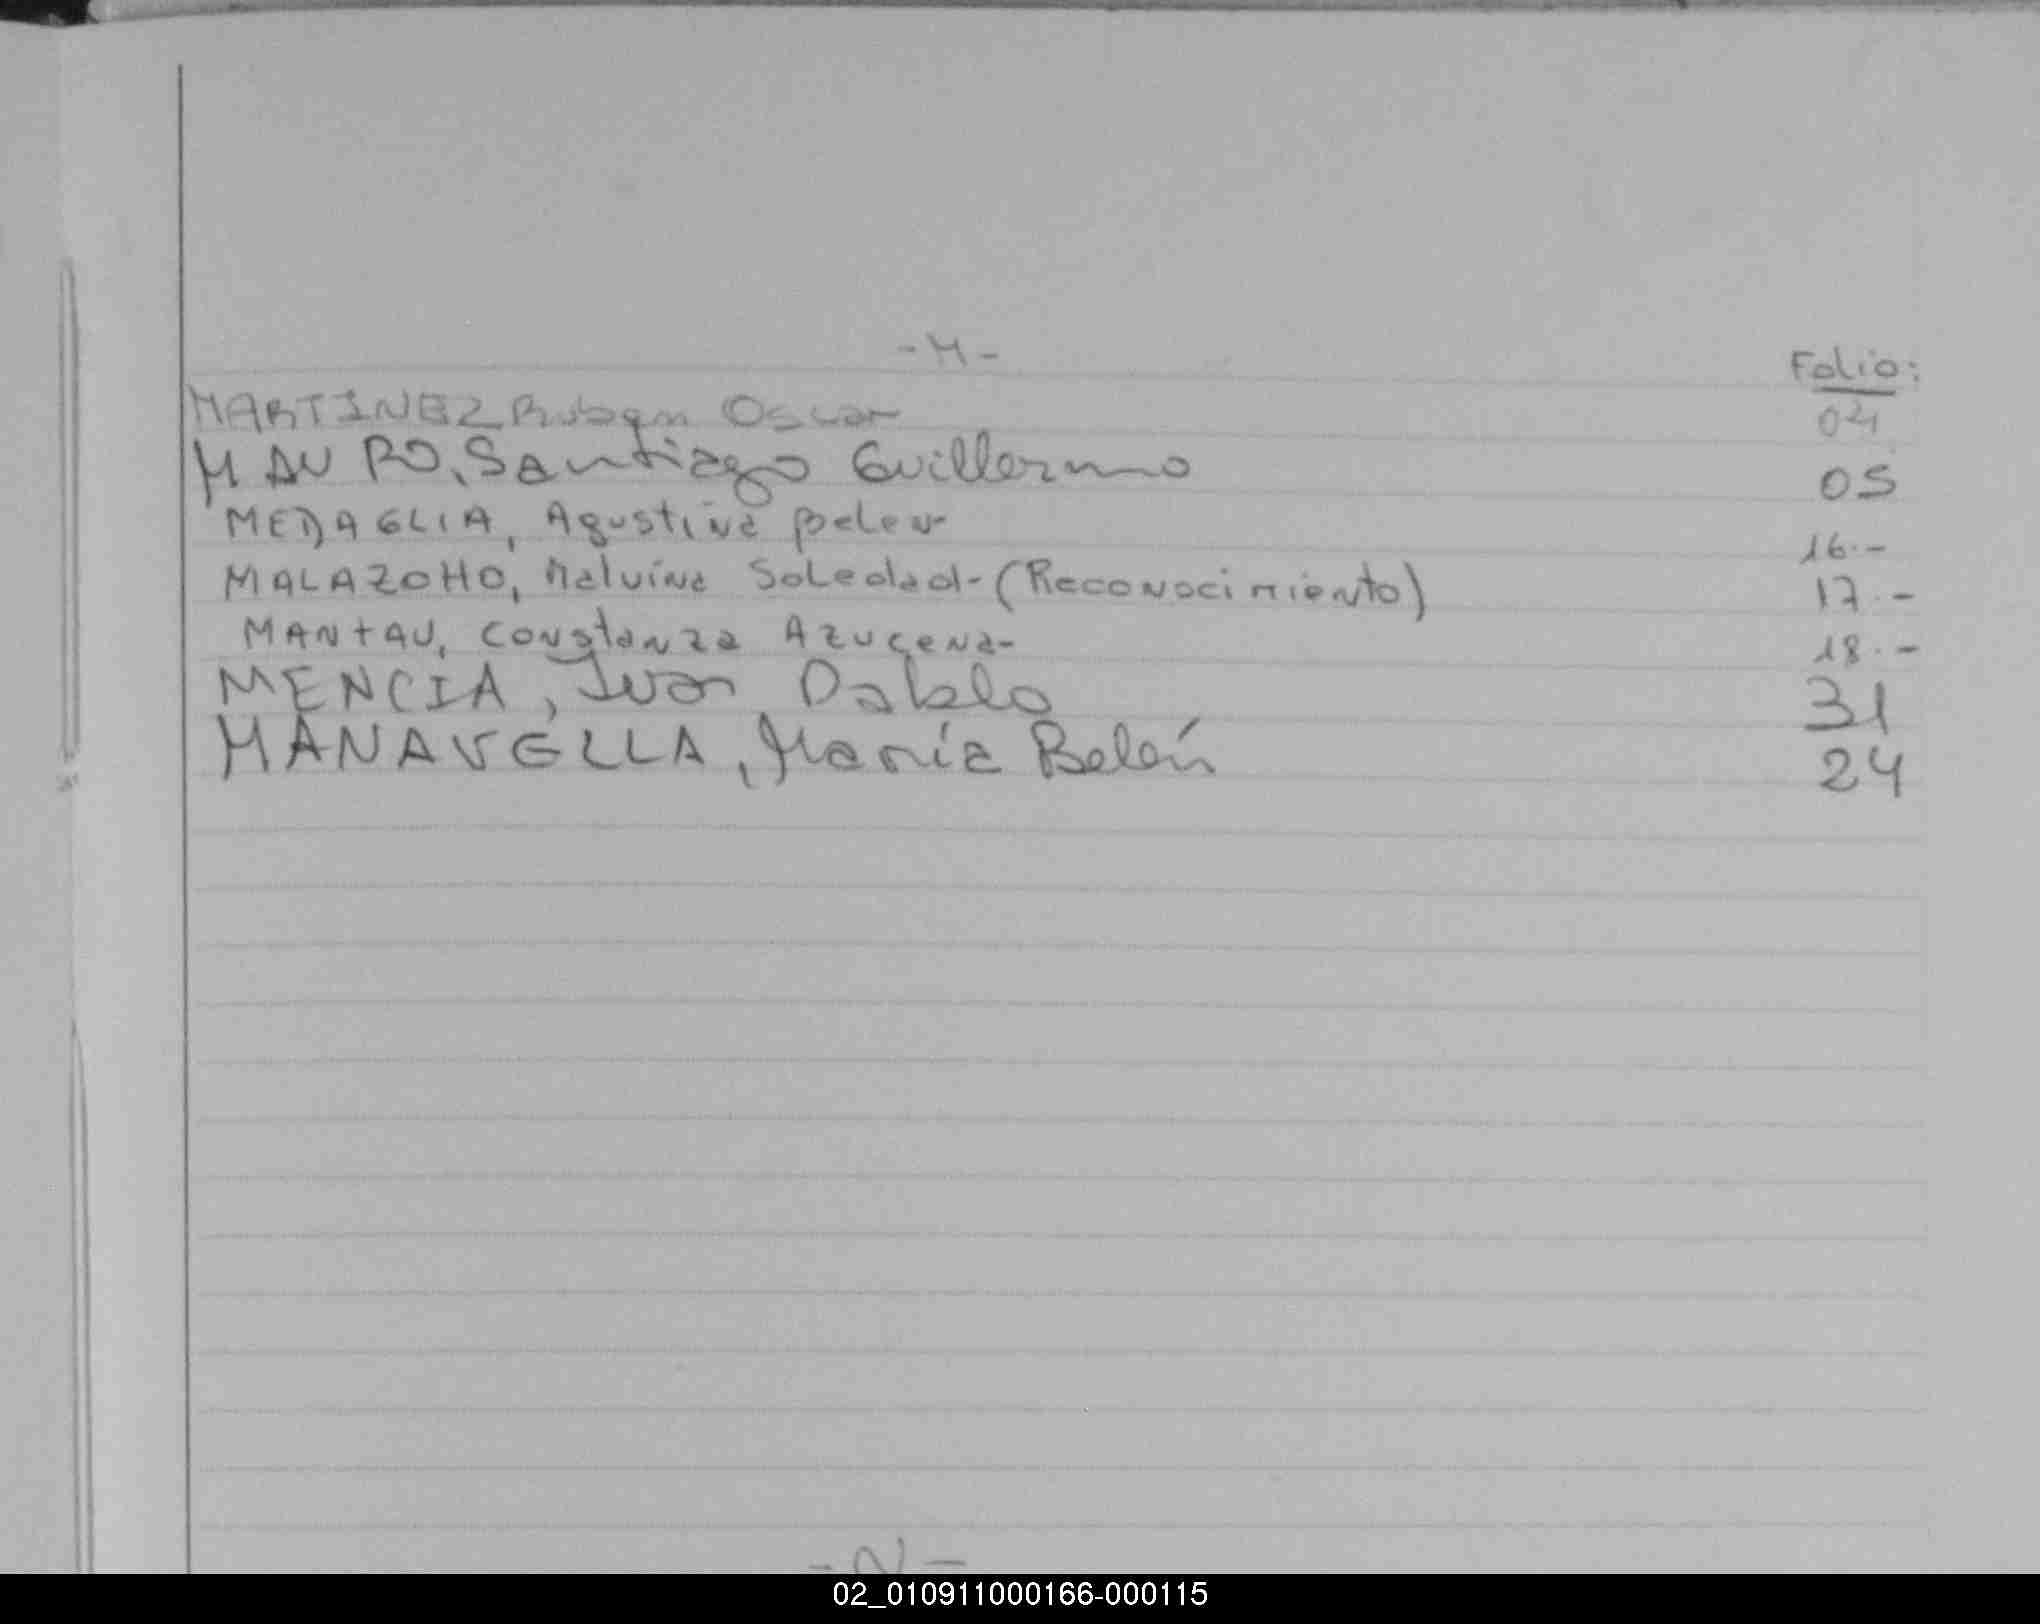 -M-
Folio:
MARTINEZ Ruben Oscar 04
MAURO, Santiago Guillermo 05
MEDAGLIA, Agustina Belen 16.-
MALAZOHO, Malvina Soledad-(Reconocimiento) 17.-
MANTAU, Constanza Azucena- 18.-
MENCIA, Ivan Pablo 31
MANAVELLA, María Belén 24
-N-
02_010911000166-000115